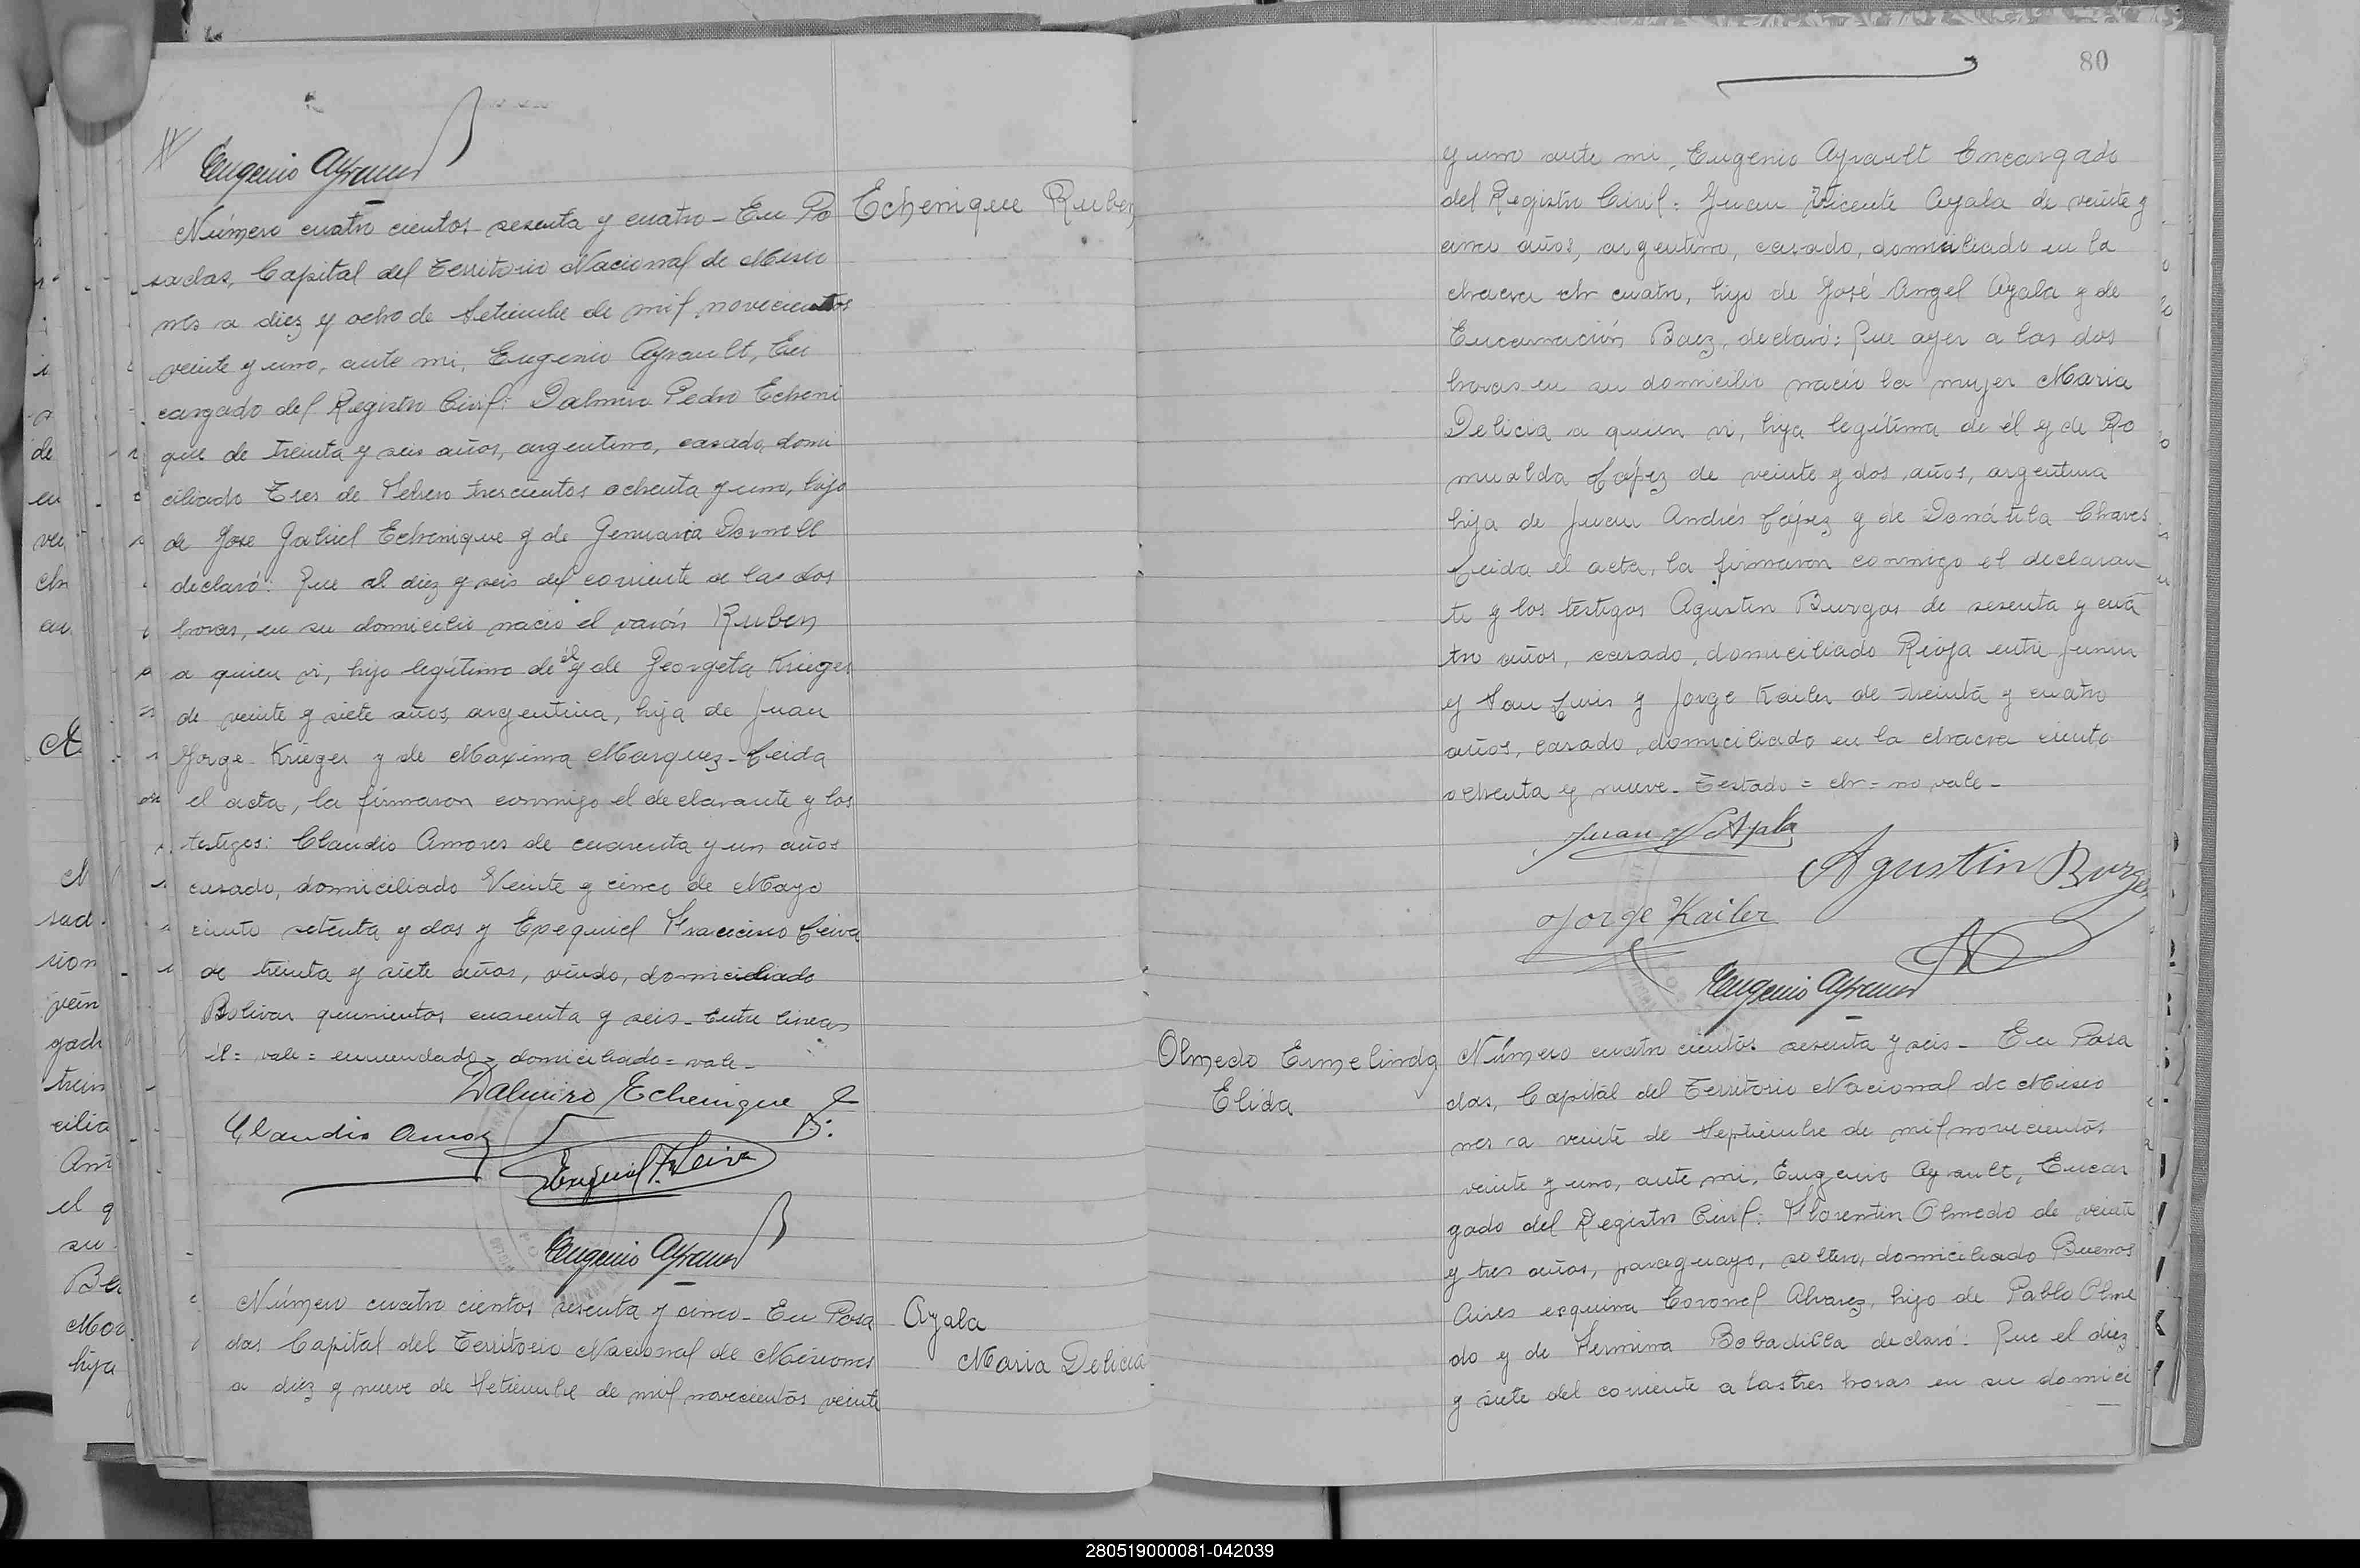 Eugenio Ayrault
Número cuatro cientos sesenta y cuatro - En Po
sadas, Capital del Territorio Nacional de Misio
nes a diez y ocho de Setiembre de mil novecientos
veinte y uno, ante mi, Eugenio Ayrault, En
cargado del Registro Civil: Dalmiro Pedro Echeni
que de treinta y seis años, argentino, casado, domi
ciliado Tres de Febrero trescientos ochenta y uno, hijo
de Jose Gabriel Echenique y de Genuaria Dornell
declaró: Que el diez y seis del corriente a las dos
horas, en su domicilio nacio el varón Ruben
a quien vi, hijo legítimo de él y de Georgeta Krieger
de veinte y siete años, argentina, hija de Juan
Jorge Krieger y de Maxima Marquez - Leida
el acta, la firmaron conmigo el declarante y los
testigos: Claudio Amores de cuarenta y un años
casado, domiciliado Veinte y cinco de Mayo
ciento setenta y dos y Exequiel Francisco Leiva
de treinta y siete años, viudo, domiciliado
Bolivar quinientos cuarenta y seis - Entre lineas
él = vale = enmendado = domiciliado = vale -
Dalmiro Echenique
Claudio Amor
Exequiel F. Leiva
Eugenio Ayrault
Número cuatro cientos sesenta y cinco - En Posa
das Capital del Territorio Nacional de Misiones
a diez y nueve de Setiembre de mil novecientos veinte
Echenique Ruben
Ayala
Maria Delicia
80
y uno ante mi, Eugenio Ayrault Encargado
del Registro Civil: Juan Vicente Ayala de veinte y
cinco años, argentino, casado, domiciliado en la
chacra ch cuatro, hijo de José Angel Ayala y de
Encarnación Baez, declaró: Que ayer a las dos
horas en su domicilio nació la mujer Maria
Delicia a quien vi, hija legítima de él y de Ro
mualda López de veinte y dos años, argentina
hija de Juan Andrés López y de Donátila Chaves
Leida el acta, la firmaron conmigo el declaran
te y los testigos Agustin Burgos de sesenta y cua
tro años, casado, domiciliado Rioja entre Junin
y San Luis y Jorge Kailer de treinta y cuatro
años, casado, domiciliado en la chacra ciento
ochenta y nueve - Testado = ch = no vale -
Juan V Ayala
Agustin Burgos
Jorge Kailer
Eugenio Ayrault
Olmedo Ermelinda
Elida
Número cuatro cientos sesenta y seis - En Posa
das, Capital del Territorio Nacional de Misio
nes a veinte de Septiembre de mil novecientos
veinte y uno, ante mi, Eugenio Ayrault, Encar
gado del Registro Civil: Florentin Olmedo de veinte
y tres años, paraguayo, soltero, domiciliado Buenos
Aires esquina Coronel Alvarez, hijo de Pablo Olme
do y de Fermina Bobadilla declaró: Que el diez
y siete del corriente a las tres horas en su domici
280519000081-042039